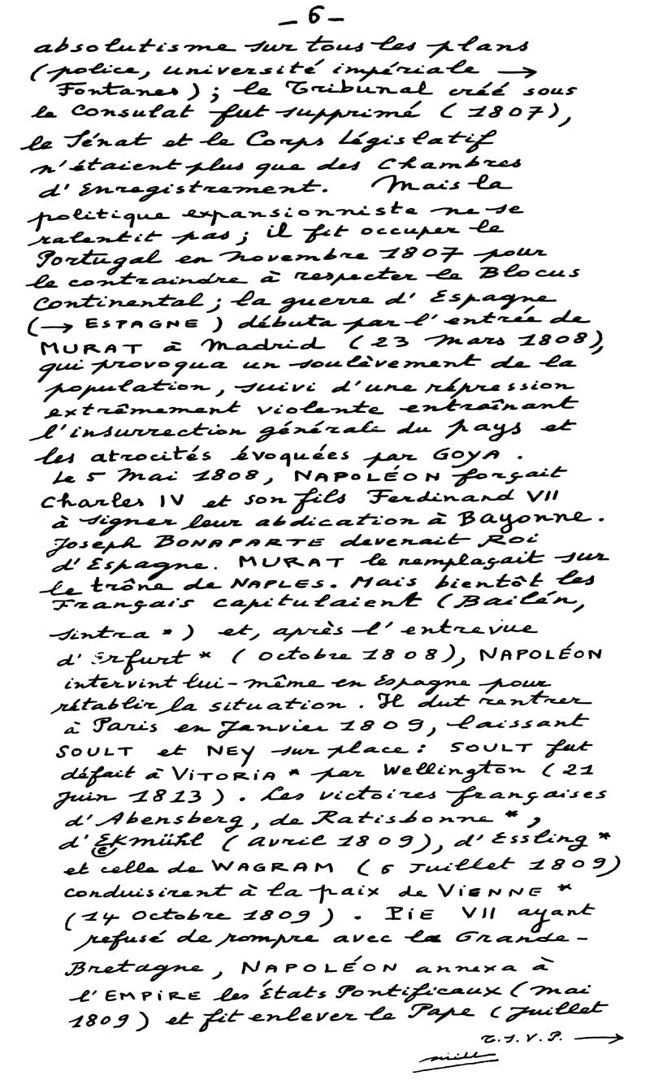 - 6 -
absolutisme sur tous les plans
(police, université impériale →
Fontanes) ; le Tribunal créé sous
le Consulat fut supprimé (1807),
le Sénat et le Corps Législatif
n'étaient plus que des Chambres
d'Enregistrement. Mais la
politique expansionniste ne se
ralentit pas ; il fit occuper le
Portugal en novembre 1807 pour
le contraindre à respecter le Blocus
Continental ; la guerre d'Espagne
(→ ESPAGNE) débuta par l'entrée de
MURAT à Madrid (23 Mars 1808),
qui provoqua un soulèvement de la
population, suivi d'une répression
extrêmement violente entraînant
l'insurrection générale du pays et
les atrocités évoquées par GOYA.
Le 5 Mai 1808, NAPOLÉON forçait
Charles IV et son fils Ferdinand VII
à signer leur abdication à Bayonne.
Joseph BONAPARTE devenait Roi
d'Espagne. MURAT le remplaçait sur
le trône de NAPLES. Mais bientôt les
Français capitulaient (Bailén,
Sintra *) et, après l'entrevue
d'Erfurt * (Octobre 1808), NAPOLÉON
intervint lui-même en Espagne pour
rétablir la situation. Il dut rentrer
à Paris en Janvier 1809, laissant
SOULT et NEY sur place : SOULT fut
défait à VITORIA * par Wellington (21
Juin 1813). Les victoires françaises
d'Abensberg, de Ratisbonne *,
d'Ekmühl (Avril 1809), d'Essling *
et celle de WAGRAM (6 Juillet 1809)
conduisirent à la paix de VIENNE *
(14 Octobre 1809). PIE VII ayant
refusé de rompre avec la Grande-
Bretagne, NAPOLÉON annexa à
l'EMPIRE les États Pontificaux (Mai
1809) et fit enlever le Pape (Juillet
T.S.V.P. →